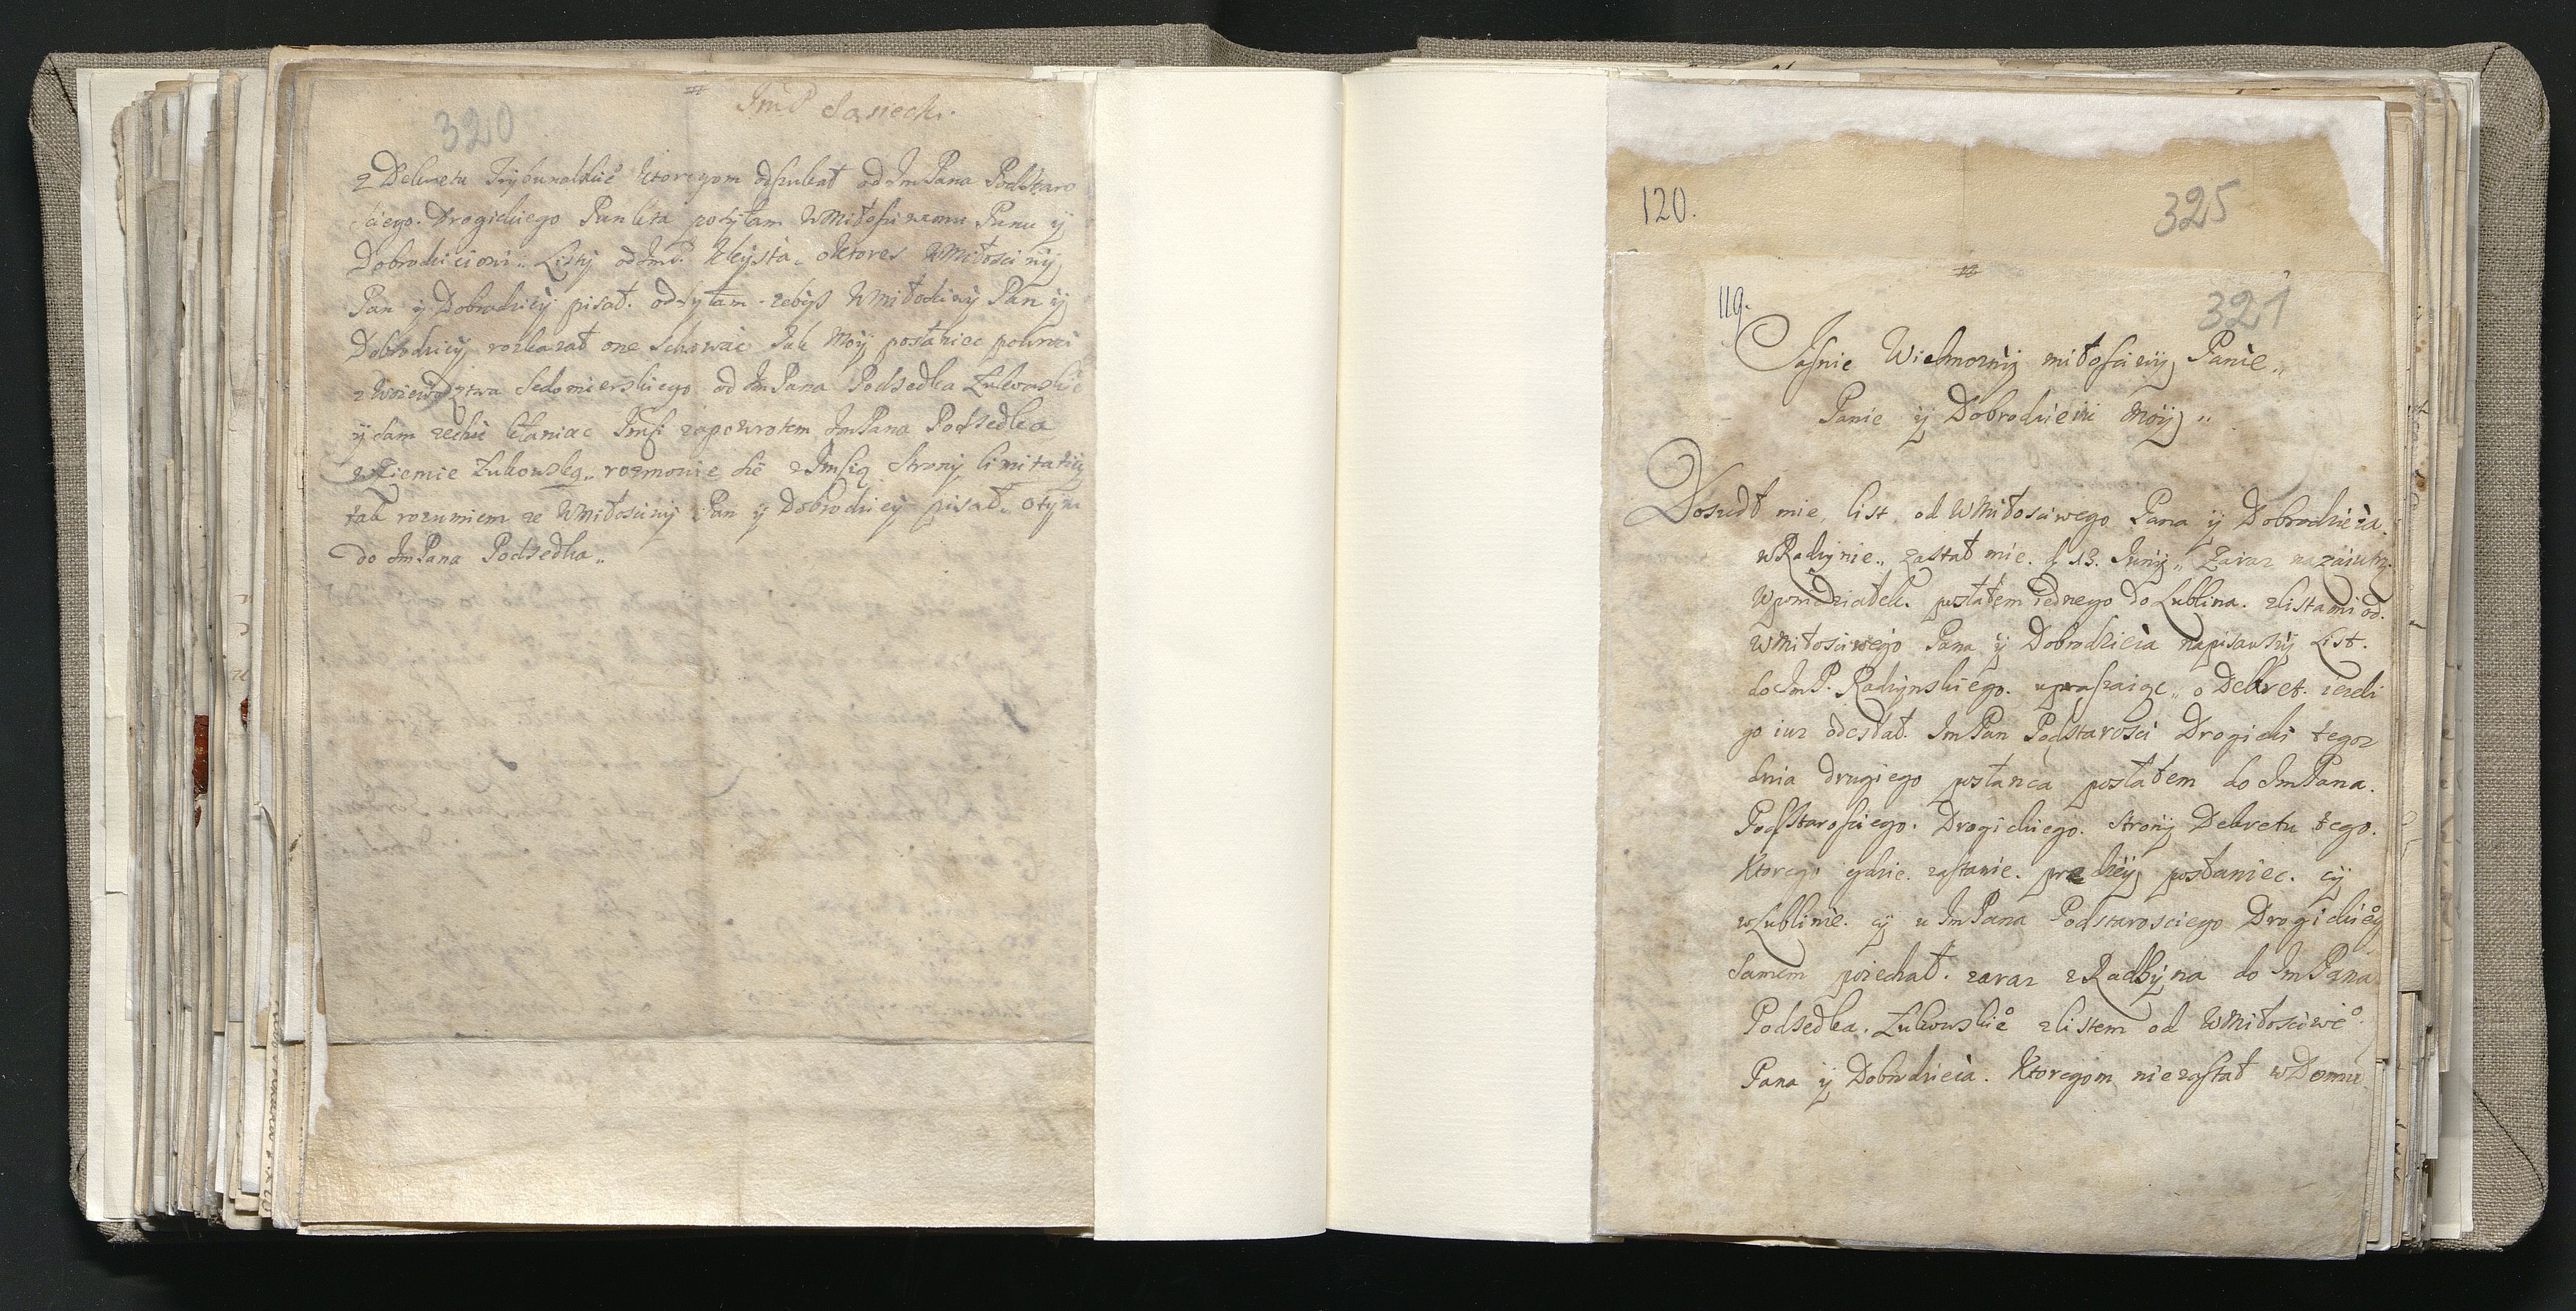 320
ImP Sasiecki.
z Dekretu Trybunalskie° ktoregom odszukał od Im Pana Podstaro
sciego. Drogickiego posyłam WMiłosciwemu Panu ÿ
Dobrodzieiowi „ Listÿ od ImP. Kleÿsta. oktores WMiłosciwÿ
Pan ÿ Dobrodzieÿ pisał. odsyłam. zebÿs WMiłosciwÿ Pan ÿ
Dobrodzieÿ roskazał one schowac Jak Moÿ posłaniec powroci
z Woiewodztwa Sedomierskiego od Im Pana Podsedka Łukowskie°
ÿ dam zapowrotem Im Pana Podsedka
w Ziemie Łukowską „ rozmowie sie z Imscią Stronÿ limitatiÿ
tak rozumiem ze WMiłosciwÿ Pan ÿ Dobrodzieÿ pisał „ otÿm
do Im Pana Podsedka „
120.
325
119.
321
Jasnie Wielmoznÿ miłosciwÿ Panie „
Panie ÿ Dobrodzieiu Moÿ „
Doszedł mie, list, od WMiłosciwego Pana ÿ Dobrodzieia.
w Radzynie „ zastał mie. d 13. Junÿ „ Zaraz nazaiutrz.
W poniedziałek. posłałem iednego do Lublina. z listami od.
WMiłosciwego Pana ÿ Dobrodzieia napisawszÿ List.
do ImP. Radzynskiego. upraszaiąc „ o Dekret. iezeli
go iuz odesłał. Im Pan Podstarosci Drogicki tegoz
dnia drugiego posłanca posłałem do Im Pana.
Podstarosciego. Drogickiego. stronÿ Dekretu tego.
Ktorego gdzie. zastanie. prędzeÿ posłaniec. cÿ
w Lublinie. cÿ u Im Pana Podstarosciego Drogickie°
samem poiechał. zaraz z Radzÿna do Im Pana
Podsedka. Łukowskie° z listem od WMiłosciwe°.
Pana ÿ Dobrodzieia. Ktoregom nie zastał w Domu